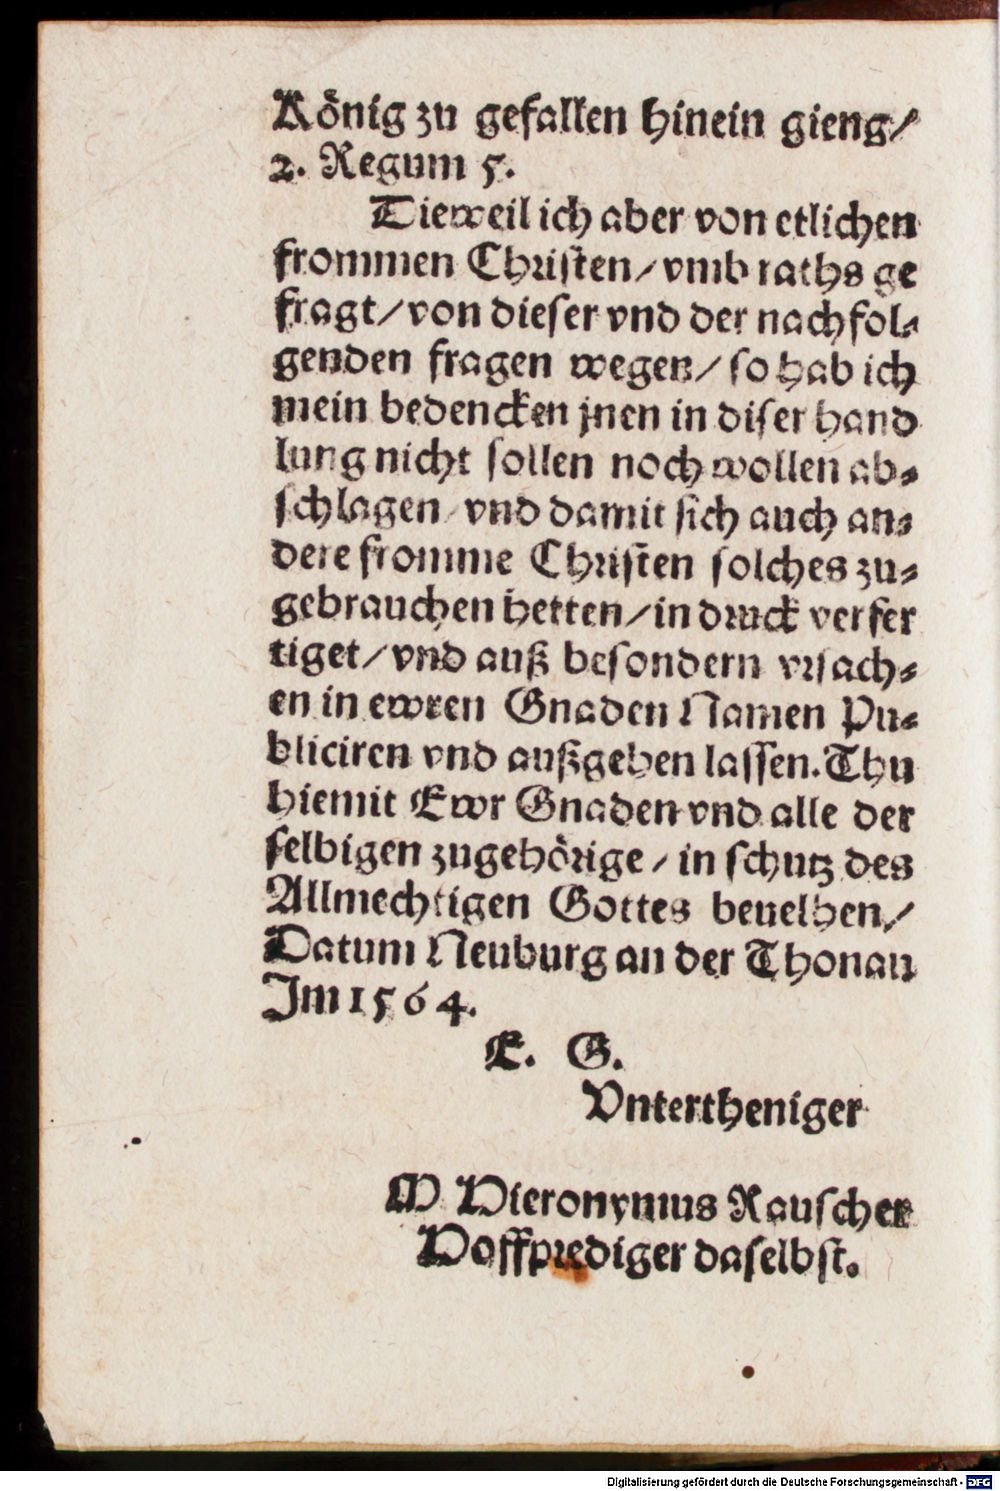 König zu gefallen hinein gieng/
2. Regum 5.
Dieweil ich aber von etlichen
frommen Christen/ vmb raths ge
fragt/ von dieser vnd der nachfol⸗
genden fragen wegen/ so hab ich
mein bedencken jnen in diser hand
lung nicht sollen noch wollen ab⸗
schlagen/ vnd damit sich auch an⸗
dere fromme Christen solches zu⸗
gebrauchen hetten/ in druck verfer
tiget/ vnd auß besondern vrsach⸗
en in ewren Gnaden Namen Pu⸗
bliciren vnd außgehen lassen. Thu
hiemit Ewr Gnaden vnd alle der
selbigen zugehörige/ in schutz des
Allmechtigen Gottes beuelhen/
Datum Neuburg an der Thonau
Im 1564.
E. G.
Vntertheniger
M Hieronymus Rauscher
Hoffprediger daselbst.
Digitalisierung gefördert durch die Deutsche Forschungsgemeinschaft - DFG